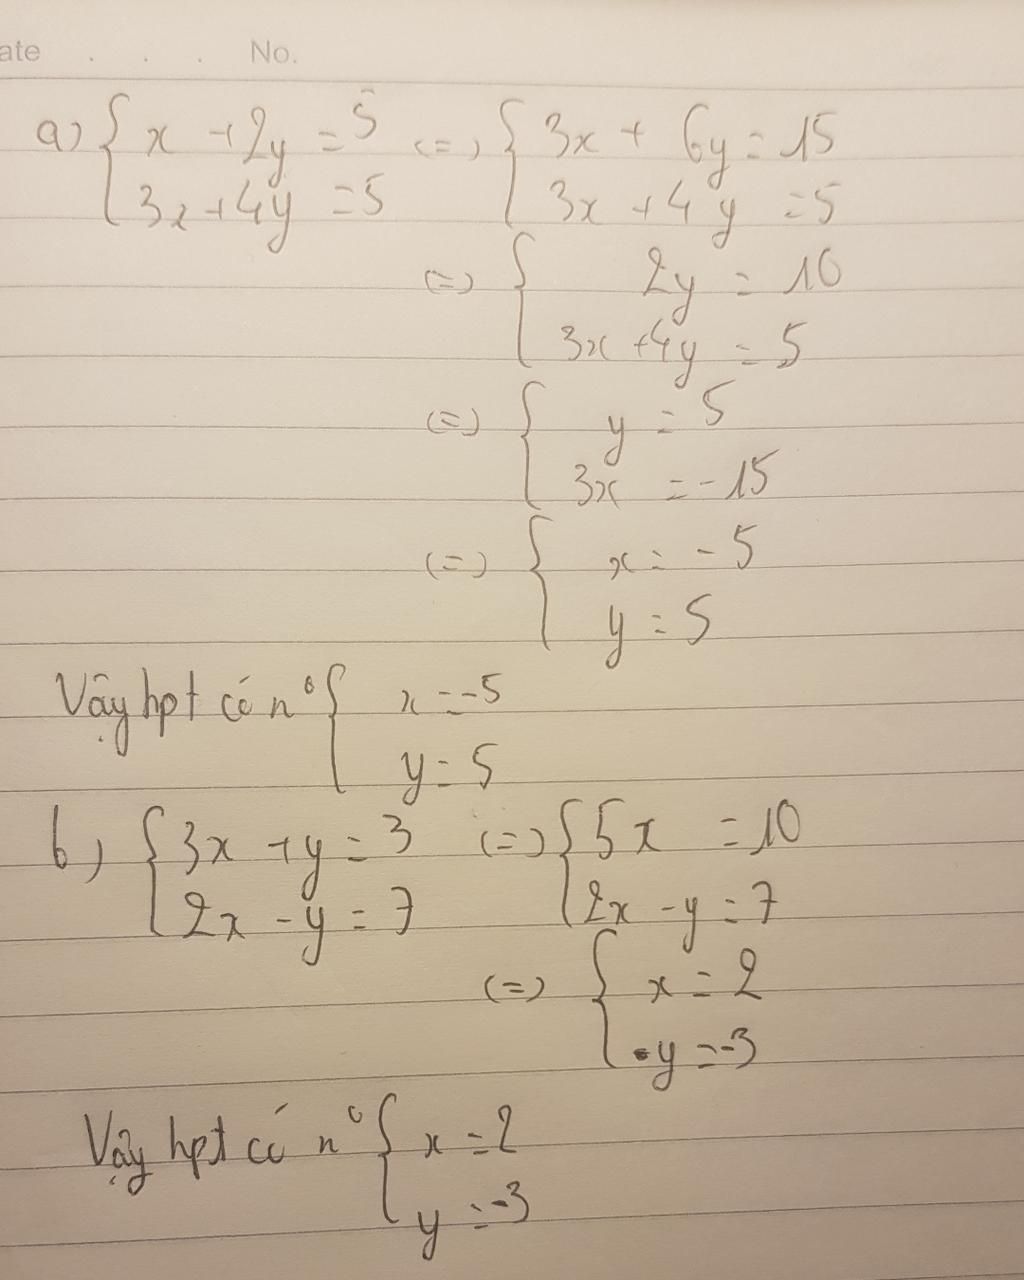 ate . . . No.
a) { x + 2y = 5 (=) { 3x + 6y = 15
3x + 4y = 5 3x + 4y = 5
(=) { 2y = 10
3x + 4y = 5
(=) { y = 5
3x = -15
(=) { x = -5
y = 5
Vậy hpt có n° { x = -5
y = 5
b) { 3x + y = 3 (=) { 5x = 10
2x - y = 7 2x - y = 7
(=) { x = 2
y = -3
Vậy hpt có n° { x = 2
y = -3